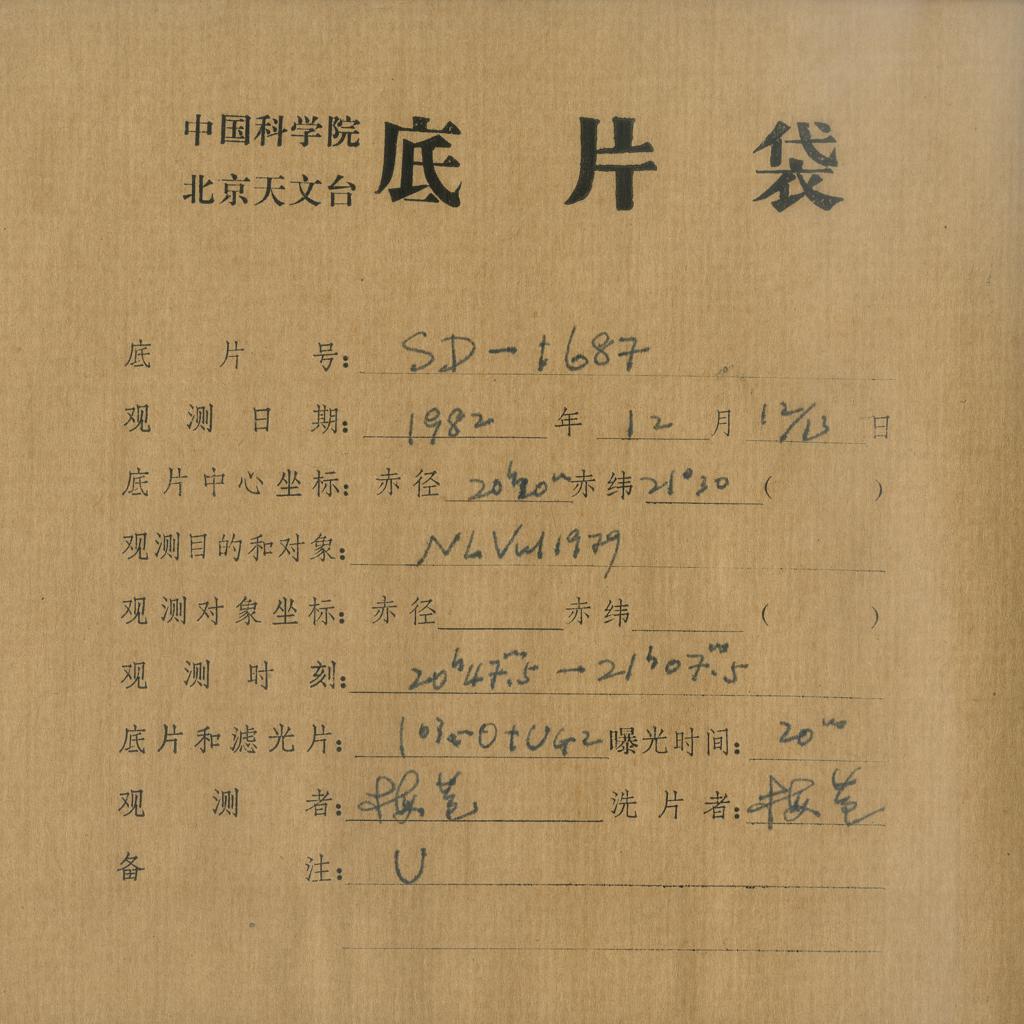 中国科学院
北京天文台
底片袋
底片号： SD-1687
观测日期： 1982 年 12 月 12/13 日
底片中心坐标： 赤径 20ʰ20ᵐ 赤纬 21°30 ( )
观测目的和对象： 1979
观测对象坐标： 赤径 赤纬 ( )
观测时刻： 20ʰ47ᵐ.5 → 21ʰ07ᵐ.5
底片和滤光片： 103a-O+UG2 曝光时间： 20ᵐ
观测者： 洗片者：
备注： U